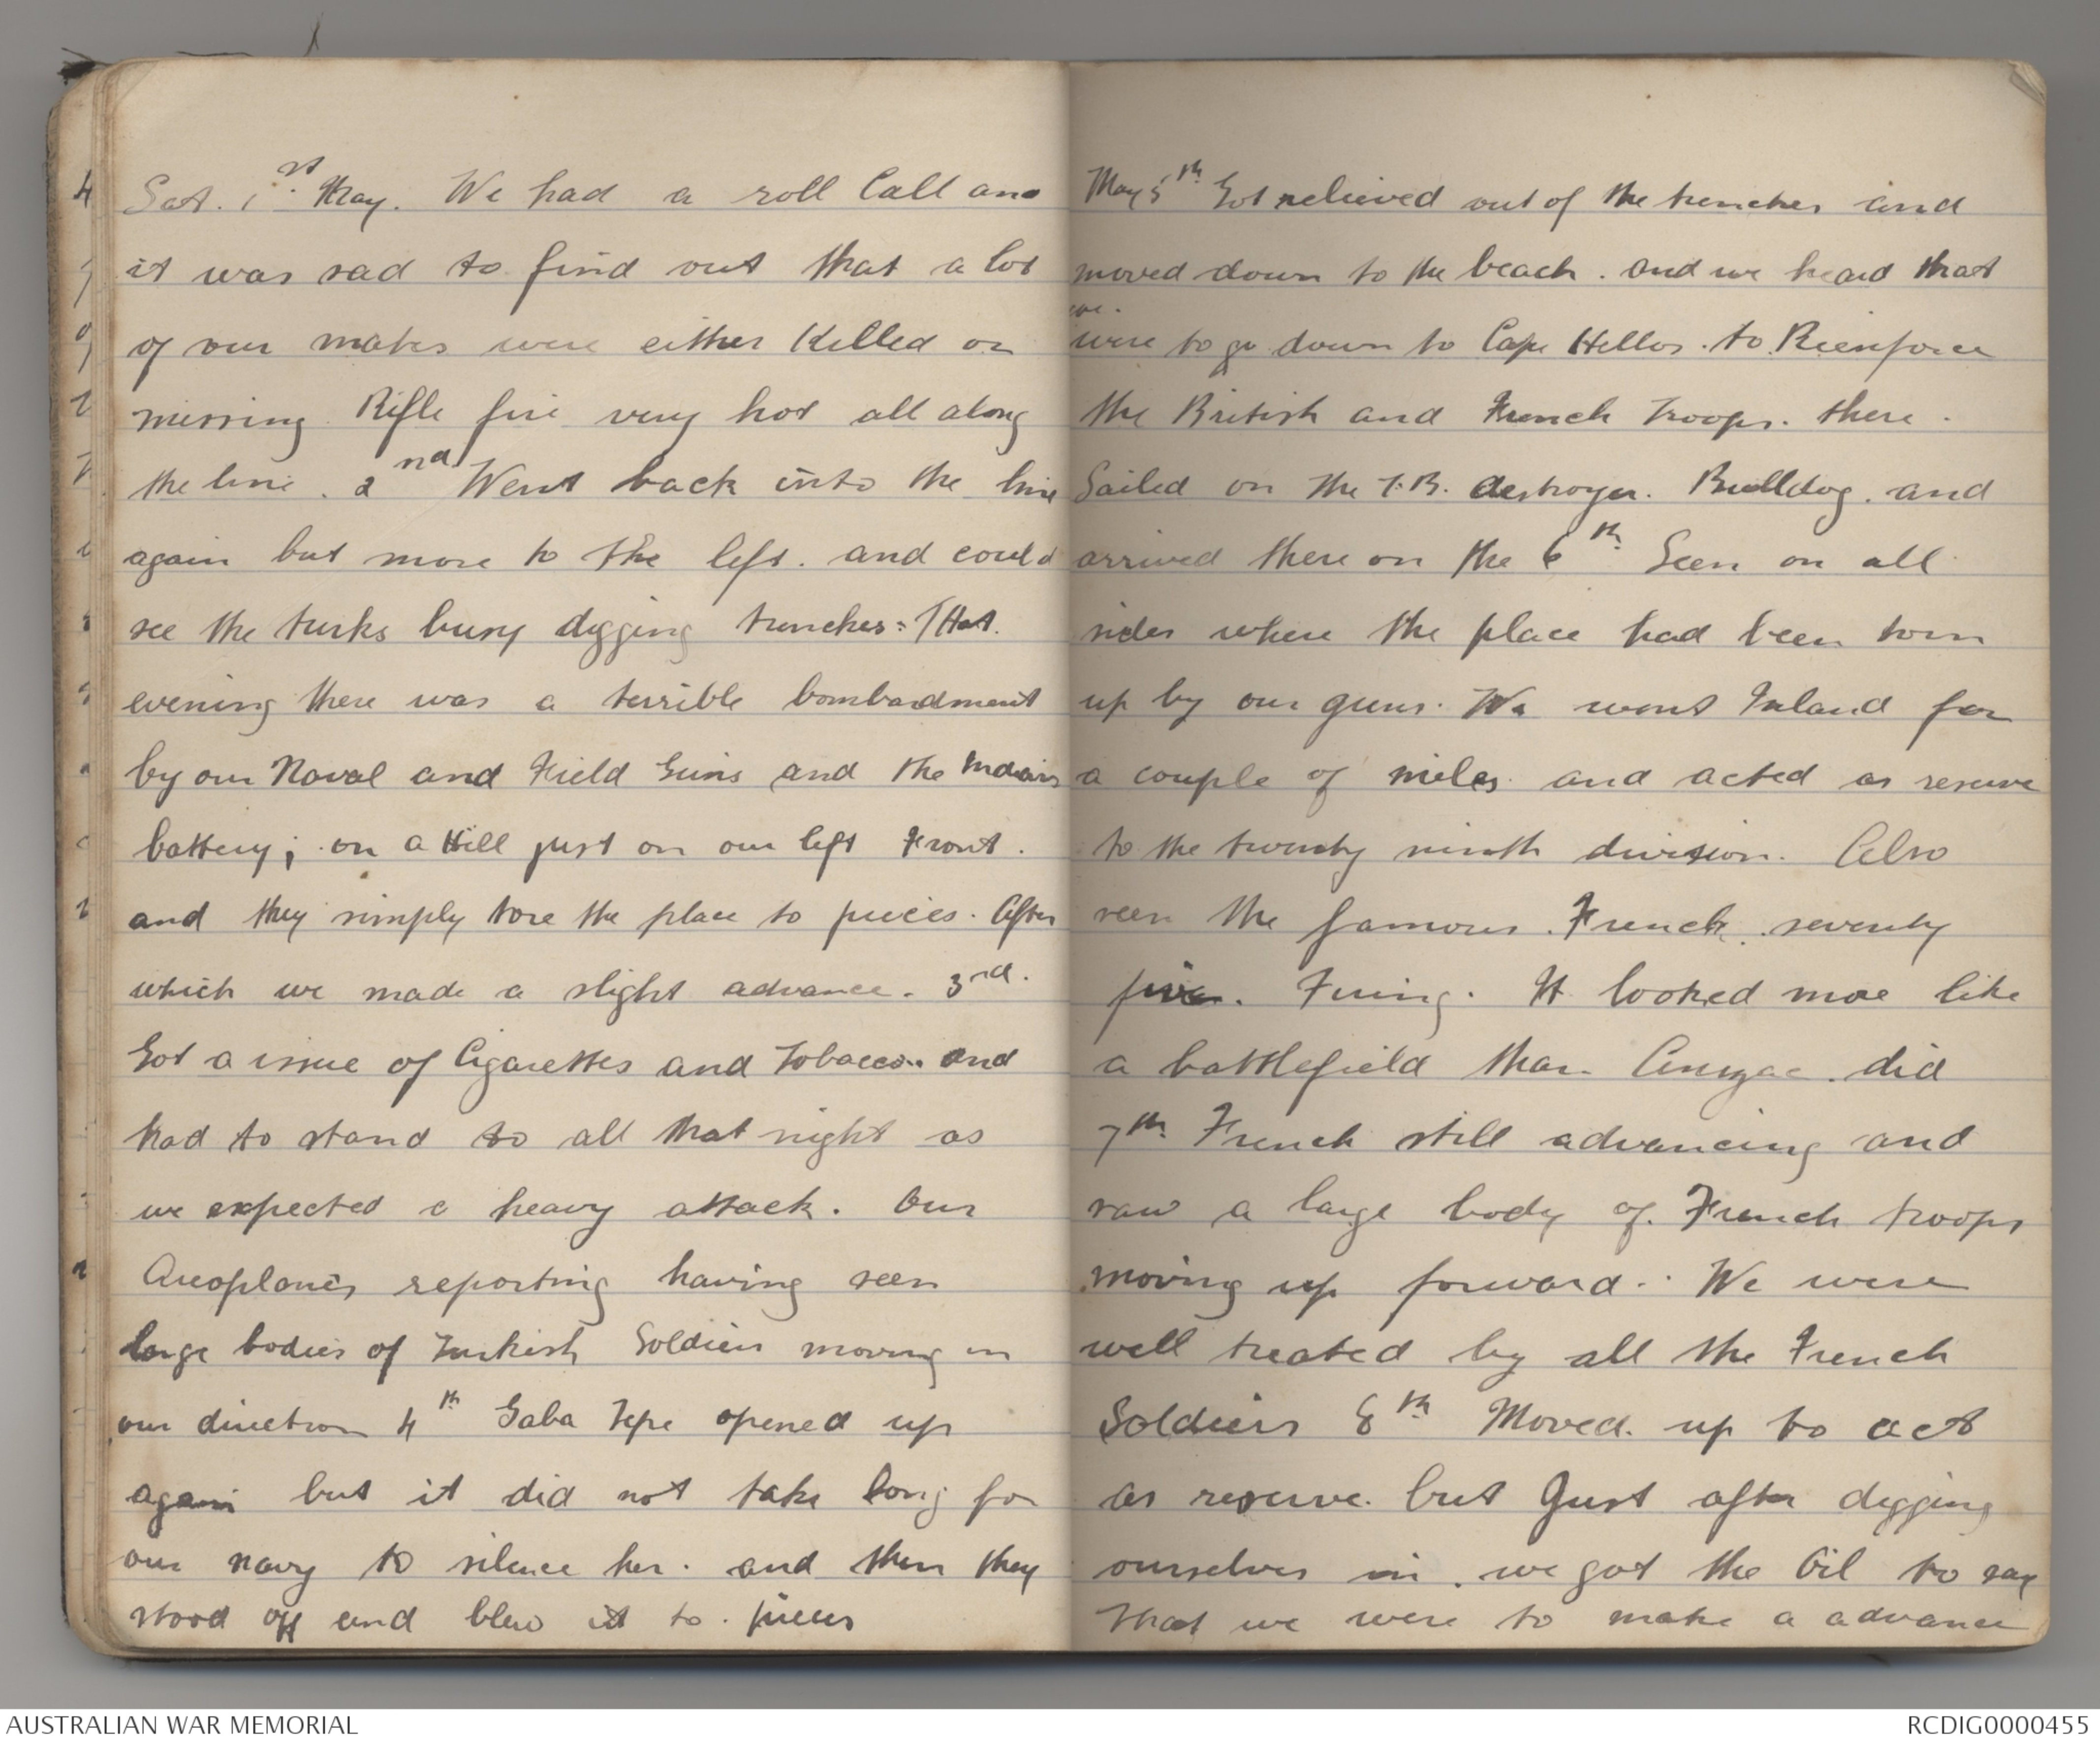 Sat. 1st. May. We had a roll Call and
it was sad to find out that a lot
of our mates were either Killed or
missing. Rifle fire very hot all along
the line. 2nd Went back into the line
again but more to the left. and could
see the turks busy digging trenches: THat.
evening there was a terrible bombardment
by our Naval and Field Guns and the Indian
battery; on a Hill just on our left Front.
and they simply tore the place to pieces. After
which we made a slight advance. 3rd.
Got a issue of Cigarettes and Tobacco.. and
had to stand to all that night as
we expected a heavy attack. Our
Aeroplanes reporting having seen
large bodies of Turkish Soldiers moving in
our direction 4th Gaba Tepe opened up
again but it did not take long for
our navy to silence her. and then they
stood off and blew it to. pieces
May 5th Got relieved out of the trenches and
moved down to the beach. and we heard that
we.
were to go down to Cape Hellos. to Rienforce
the British and French Troops. there.
Sailed on the T.B. destroyer. Bulldog. and
arrived there on the 6th Seen on all
sides where the place had been torn
up by our guns. We went Inland for
a couple of miles and acted as reserve
to the twenty ninth division. Also
seen the famous. French. seventy
five. Firing. It looked more like
a battlefield than Anzac. did
7th French still advancing and
saw a large body of. French troops
moving up forward. We were
well treated by all the French
Soldiers 8th Moved. up to act
as reserve. but Just after digging
ourselves in. we got the Oil to say
That we were to make a advance
AUSTRALIAN WAR MEMORIAL
RCDIG0000455